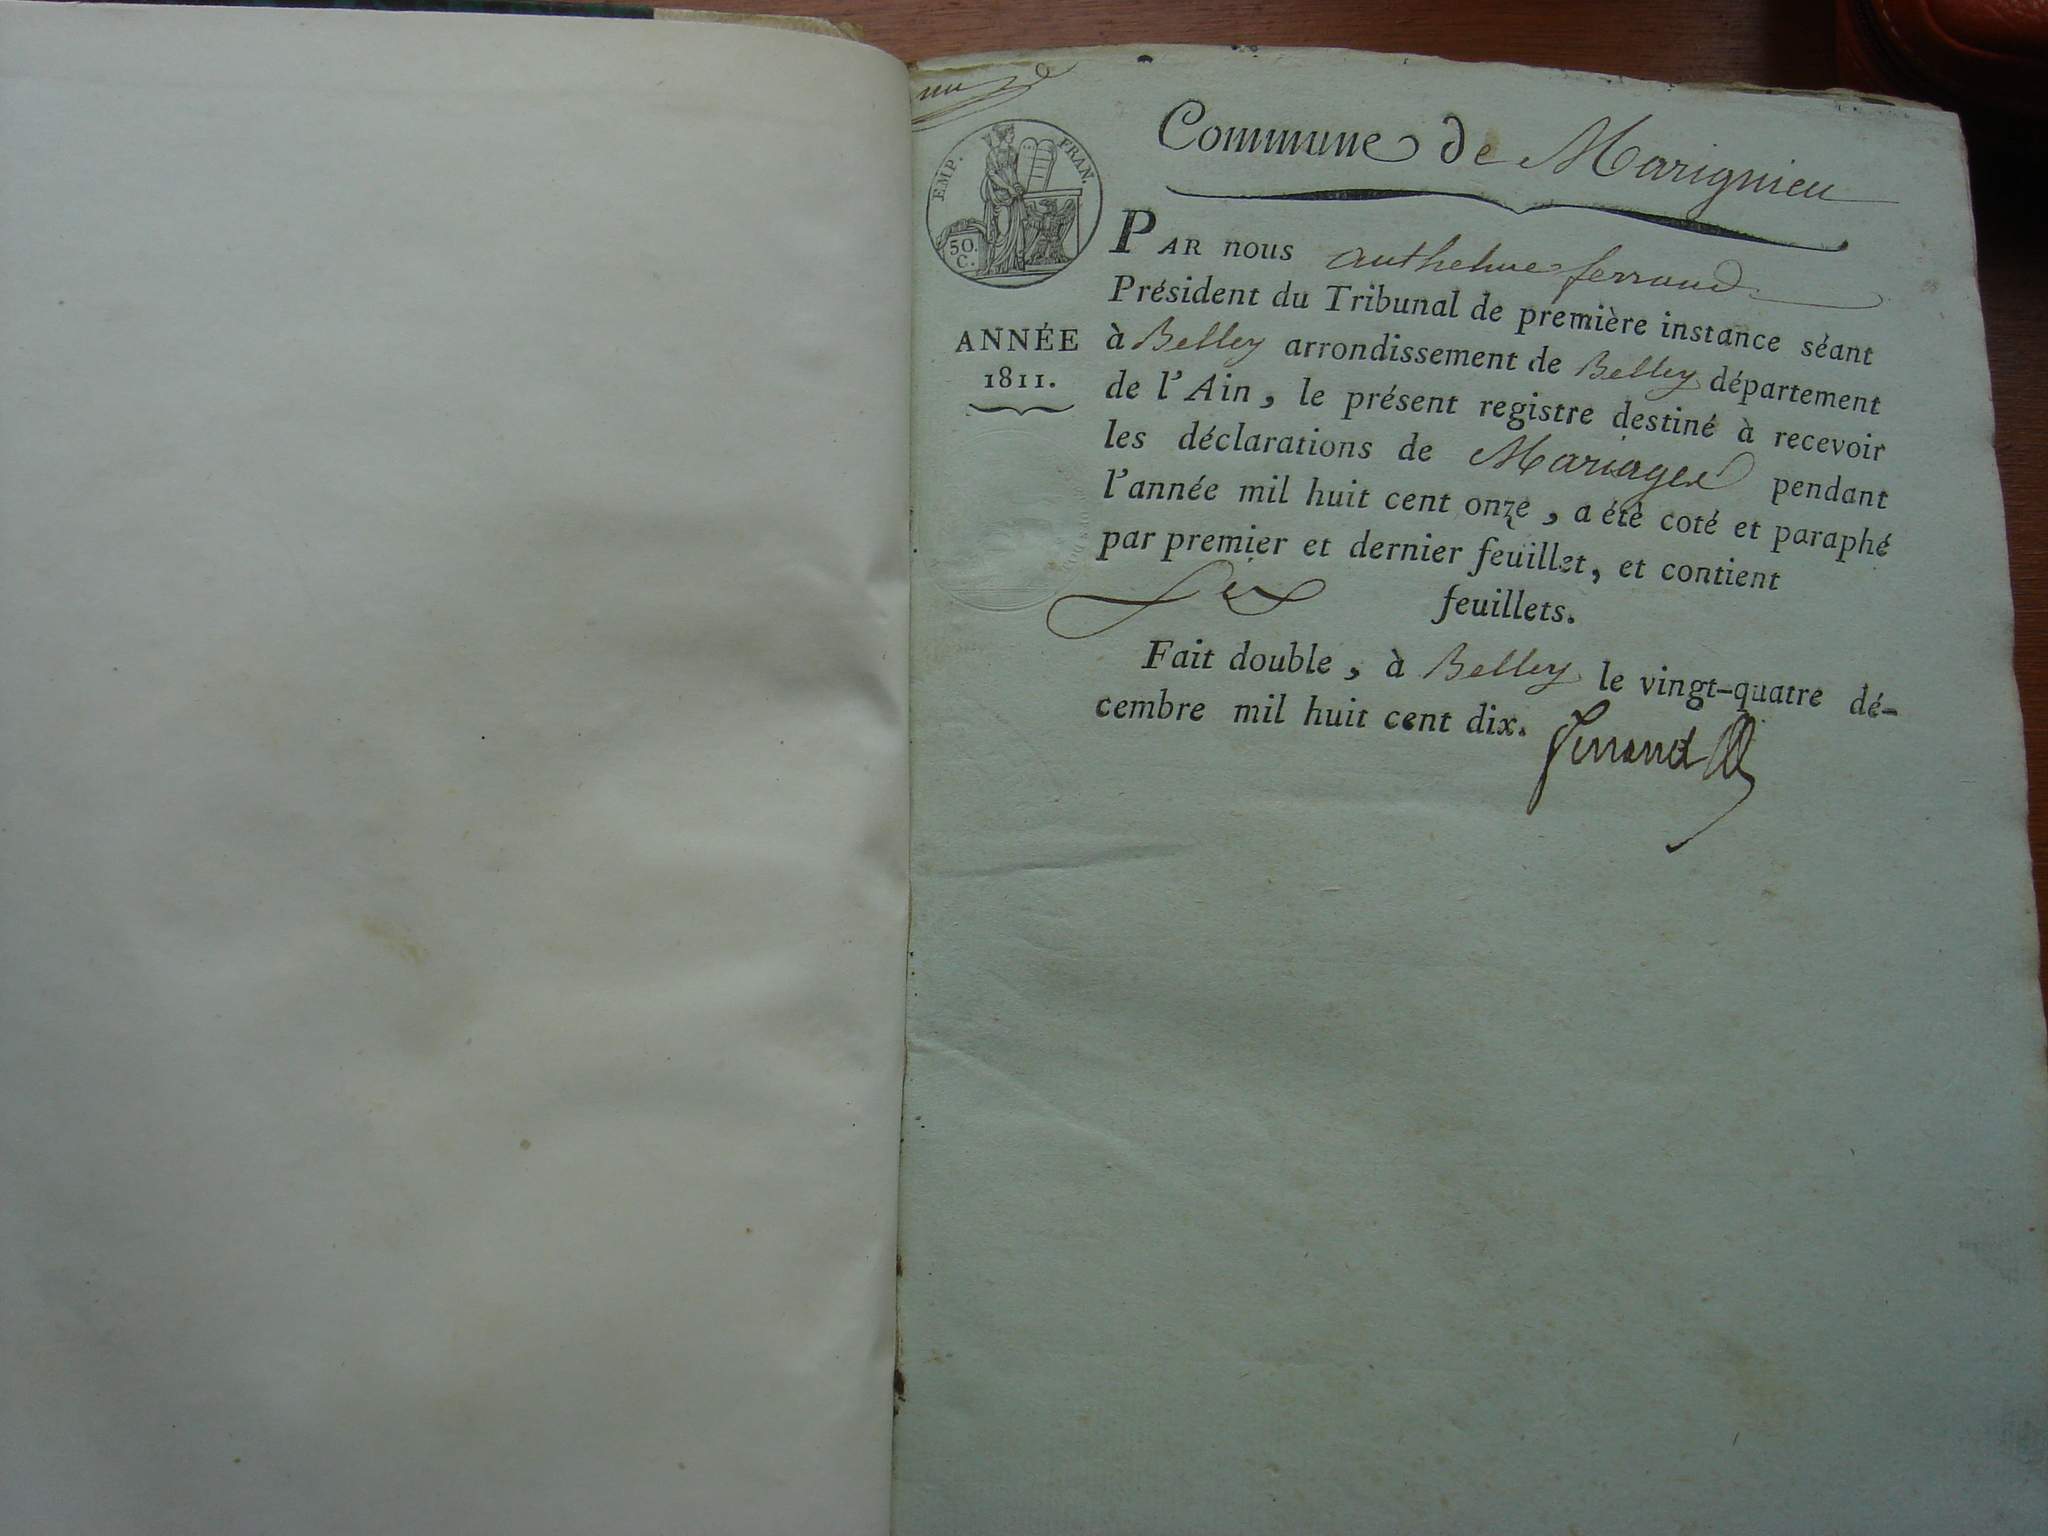 Commune de Marignieu
EMP. FRAN.
50.
C.
ANNÉE
1811.
PAR nous anthelme ferrand
Président du Tribunal de première instance séant
à Belley arrondissement de Belley département
de l'Ain, le présent registre destiné à recevoir
les déclarations de Mariages pendant
l'année mil huit cent onze, a été coté et paraphé
par premier et dernier feuillet, et contient
six feuillets.
Fait double, à Belley le vingt-quatre dé-
cembre mil huit cent dix. ferrand